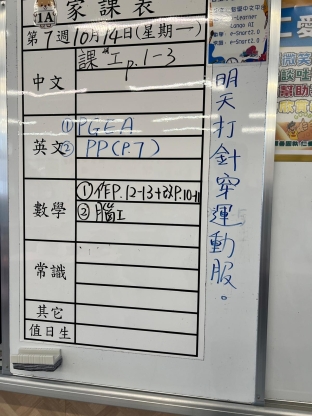 家課表
1A
第7週10月14日(星期一)
中文
課工p.1-3
英文
①PGEA
②PP(P.7)
數學
①作P.12-13+改P.10-11
②腦工
常識
其它
值日生
明天打針穿運動服。